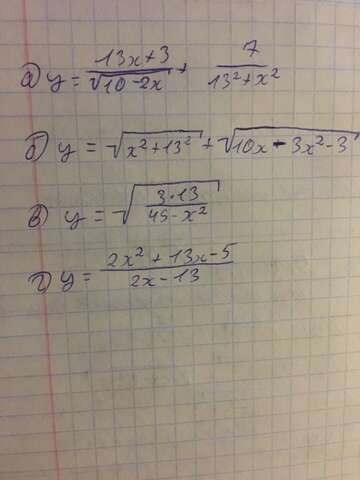 а) y = (13x+3)/√(10-2x) + 7/(13²+x²)
б) y = √(x²+13²) + √(10x-3x²-3)
в) y = √((3·13)/(45-x²))
г) y = (2x²+13x-5)/(2x-13)